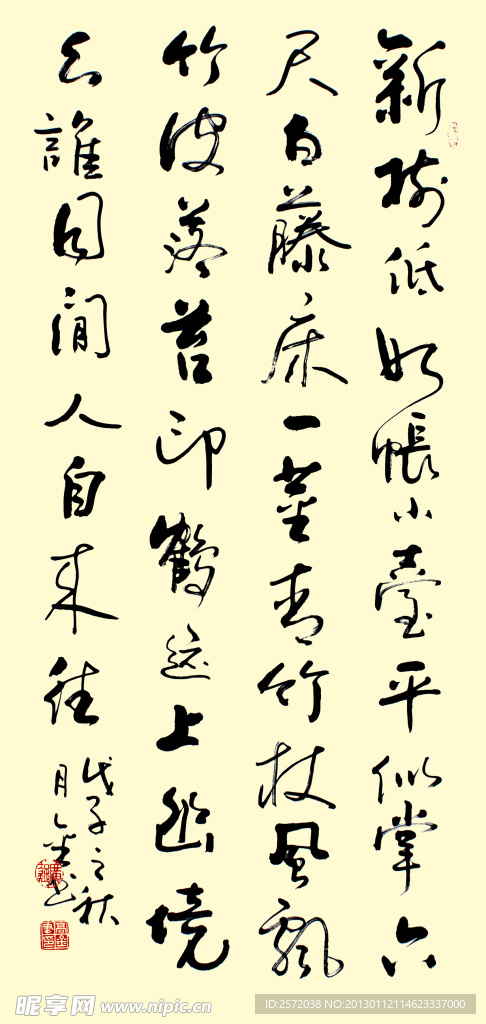 新樹低如帳小臺平似掌六
尺白藤床一莖青竹杖風飄
竹皮落苔印鶴迹上幽境
与誰同閒人自来往
戊子之秋
昵享网 www.nipic.cn
ID:2572038 NO:20130112114623337000